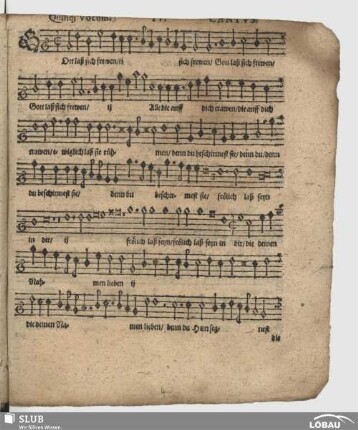 Quinq; vocum.
CANTVS.
Ott laß sich frewen/ ij sich frewen/ Gott laß sich frewen/
Gott laß sich frewen/ ij Alle die auff dich trawen/ die auff dich
trawen/ ewiglich laß sie rüh- men/ denn du beschirmest sie/ denn du/ denn
du beschirmest sie/ denn du beschir- mest sie/ frölich laß seyn
in dir/ ij frölich laß seyn/ frölich laß seyn in dir/ die deinen
Nah- men lieben ij
die deinen Na- men lieben/ denn du Herr seg- nest
die
SLUB
Wir führen Wissen.
LÖBAU